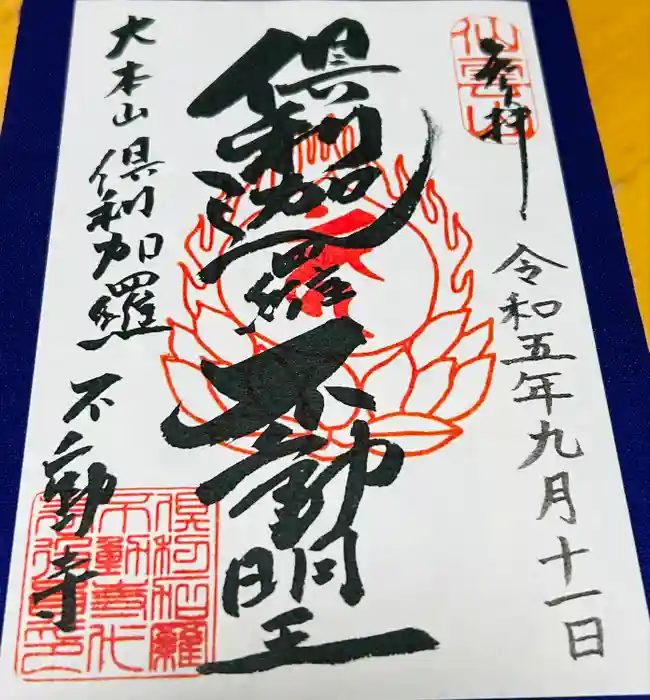 奉拝
令和五年九月十一日
倶利迦羅
不動明王
大本山 倶利加羅
不動寺